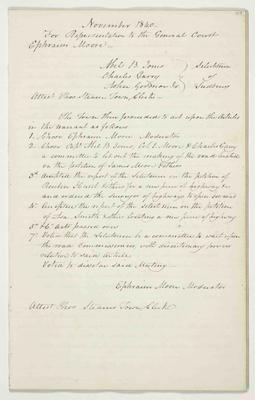 November 1840.
For Representative to the General Court
Ephraim Moore
Abel B Jones } Selectmen
Charles } of
John Goodnow Jr } Sudbury
Attest Thos Stearns Town Clerk
The Town then proceeded to act upon the articles
in the warrant as follows
1. Chose Ephraim Moore Moderator
2. Chose Capt Abel B Jones, Col E. Moore & Charles
a committee to let out the making of the road
on the petition of James Moore & others
3d Accepted the report of the Selectmen on the petition of
Reuben & others for a new piece of highway
and ordered the surveyor of highways to open
4. Accepted the report of the Selectmen on the petition
of Smith & others a new piece of highway
5th & 6th Art passed over
7. Voted that the Selectmen be a committee to wait upon
the road Commissioners, with discretionary power
relative to said article
Voted to dissolve said Meeting
Ephraim Moore Moderator
Attest Thos Stearns Town Clerk